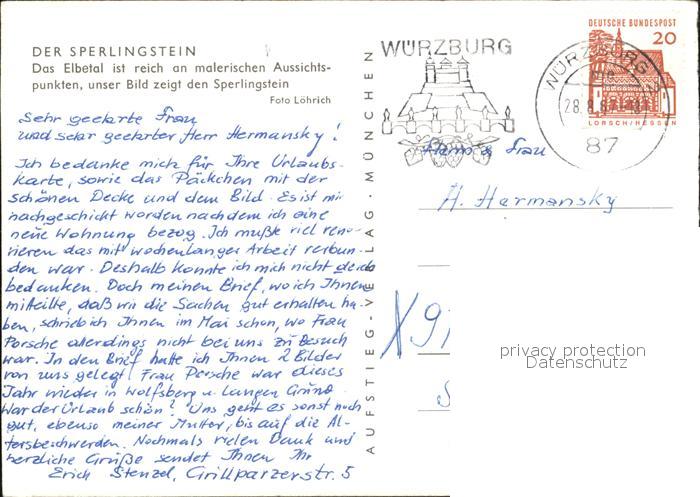 DER SPERLINGSTEIN
Das Elbetal ist reich an malerischen Aussichts-
punkten, unser Bild zeigt den Sperlingstein
Foto Löhrich
Sehr geehrte Frau
und sehr geehrter Herr Hermansky!
Ich bedanke mich für Ihre Urlaubs-
karte, sowie das Päckchen mit der
schönen Decke und dem Bild. Es ist mir
nachgeschickt worden nachdem ich eine
neue Wohnung bezog. Ich mußte viel reno-
vieren das mit wochenlanger Arbeit verbun-
den war. Deshalb konnte ich mich nicht gleich
bedanken. Doch meinen Brief, wo ich Ihnen
mitteilte, daß wir die Sachen gut erhalten ha-
ben, schrieb ich Ihnen im Mai schon, wo Frau
Porsche allerdings nicht bei uns zu Besuch
war. In den Brief hatte ich Ihnen 2 Bilder
von uns gelegt. Frau Porsche war dieses
Jahr wieder in Wolfsberg u. Langen Grund.
War der Urlaub schön? Uns geht es sonst noch
gut, ebenso meiner Mutter, bis auf die Al-
tersbeschwerden. Nochmals vielen Dank und
herzliche Grüße sendet Ihnen Ihr
Erich Stenzel, Grillparzerstr. 5
AUFSTIEG-VERLAG · MÜNCHEN
WÜRZBURG
DEUTSCHE BUNDESPOST
20
LORSCH/HESSEN
WÜRZBURG
28.8.67
87
Herrn & Frau
H. Hermansky
privacy protection
Datenschutz